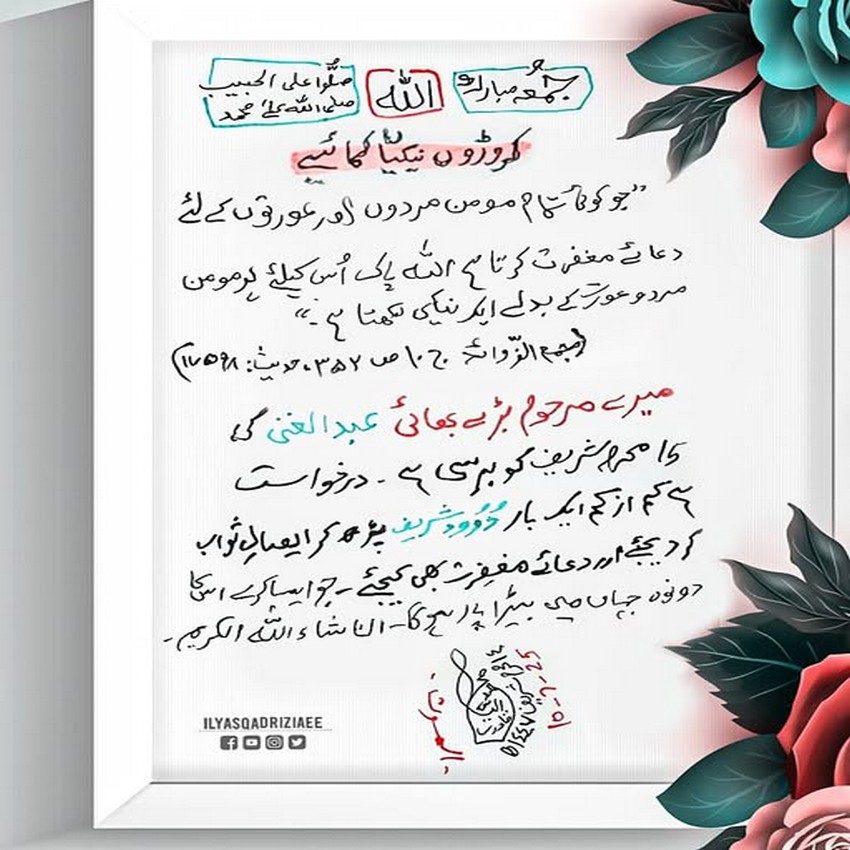 جُمُعہ مبارک
اللہ
صلُّوا علی الحبیب
صلی اللہ علیٰ محمد
کروڑوں نیکیاں کمائیے
"جو کوئی تمام مومن مردوں اور عورتوں کے لئے
دعائے مغفرت کرتا ہے اللہ پاک اُس کیلئے ہر مومن
مرد و عورت کے بدلے ایک نیکی لکھتا ہے۔"
(مجمع الزّوائد ج ۱۰ ص ۳۵۲، حدیث: ۱۷۵۹۸)
میرے مرحوم بڑے بھائی عبد الغنی کی
۱۵ محرم شریف کو برسی ہے۔ درخواست
ہے کم از کم ایک بار دُرُود شریف پڑھ کر ایصالِ ثواب
کر دیجئے اور دعائے مغفِرت بھی کیجئے۔ جو ایسا کرے اس کا
دونوں جہاں میں بیڑا پار ہوگا۔ ان شاء اللہ الکریم۔
ILYASQADRIZIAEE